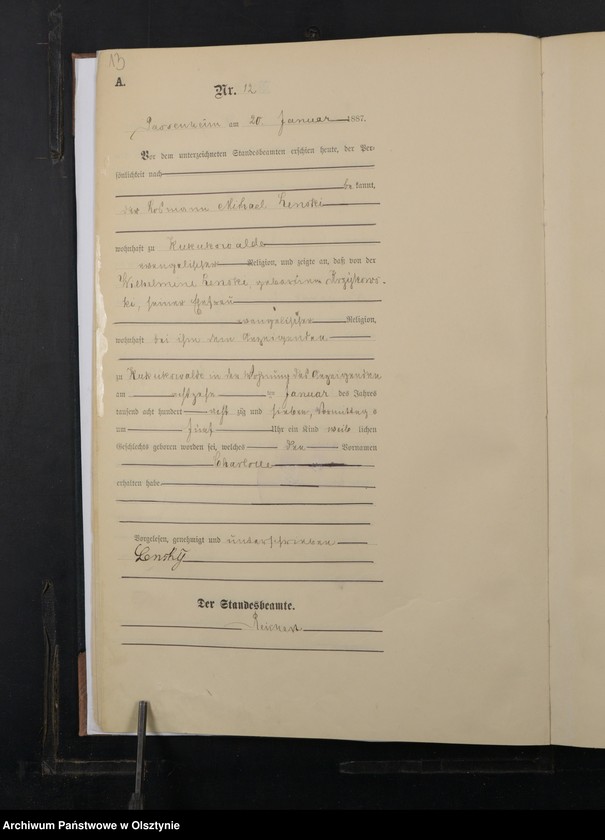 13
A.
Nr. 12
Passenheim am 20. Januar 1887.
Vor dem unterzeichneten Standesbeamten erschien heute, der Per
sönlichkeit nach
be kannt,
der Losmann Michael Lenski
wohnhaft zu Kukukswalde
evangelischer Religion, und zeigte an, daß von der
Wilhelmine Lenski, geborenen
ke, seiner Ehefrau
evangelischer Religion,
wohnhaft bei ihm dem Anzeigenden
zu Kukukswalde in der Wohnung des Anzeigenden
am achtzehn ten Januar des Jahres
tausend acht hundert acht zig und sieben, Vormittags
um fünf Uhr ein Kind weib lichen
Geschlechts geboren worden sei, welches den Vornamen
Charlotte
erhalten habe.
Vorgelesen, genehmigt und unterschrieben
Lensky
Der Standesbeamte.
Archiwum Państwowe w Olsztynie